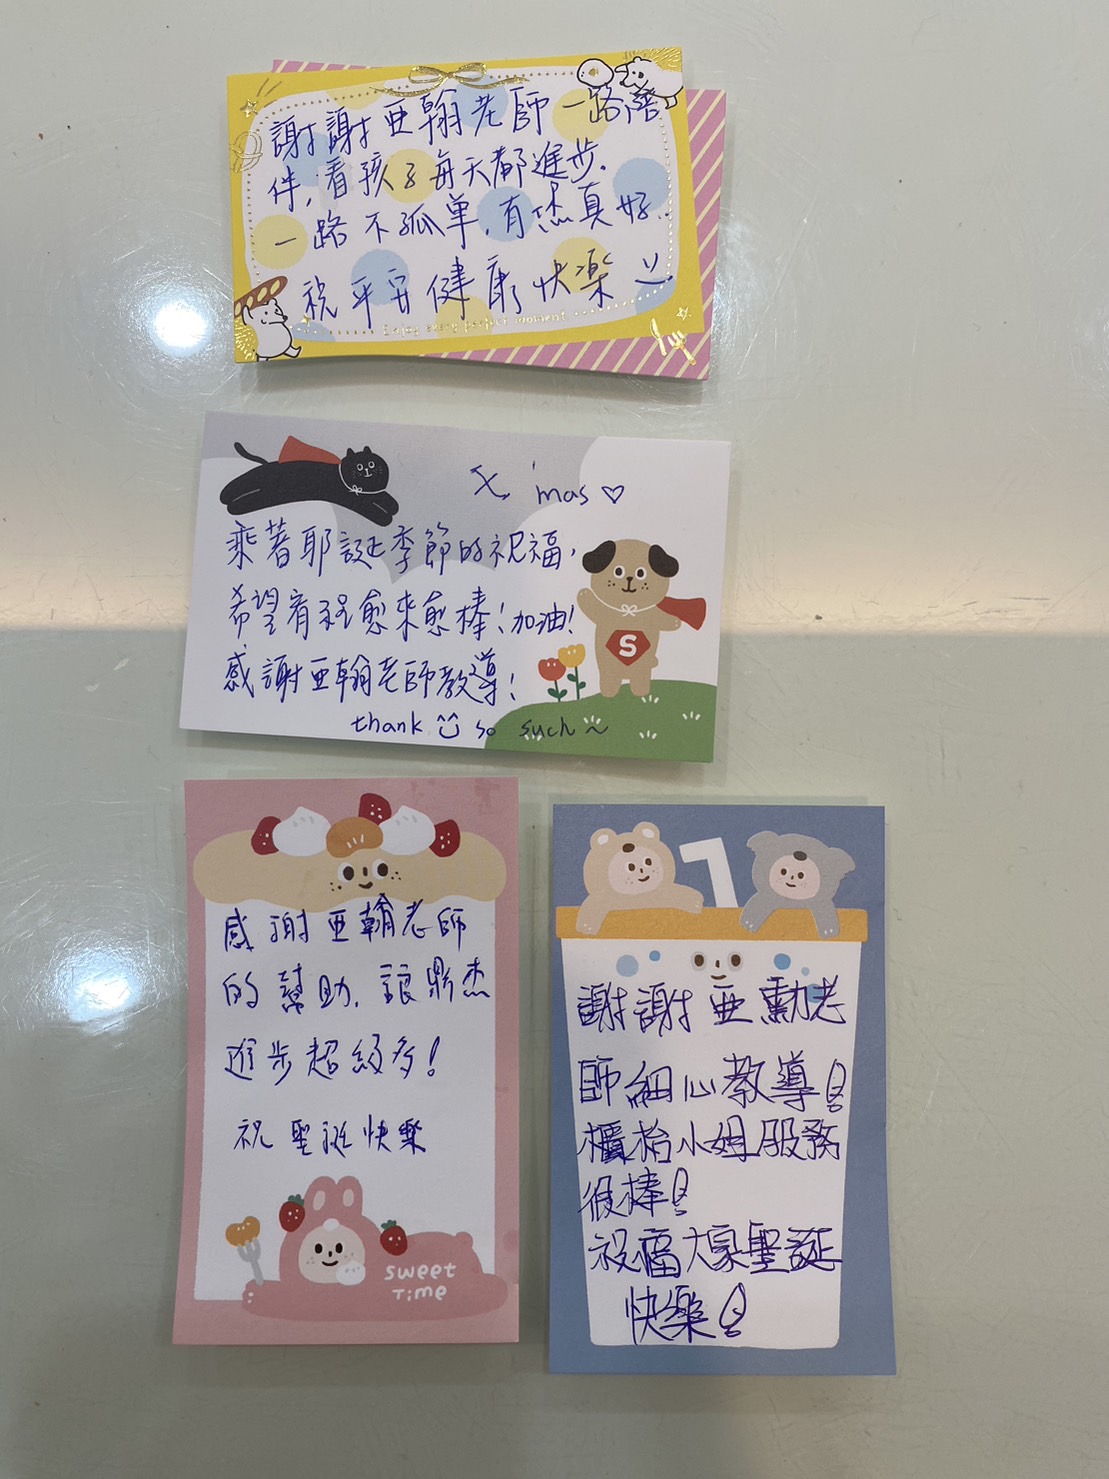 謝謝亞翰老師一路陪
伴,看孩子每天都進步.
一路不孤單,有您真好.
祝平安健康快樂
Enjoy every perfect moment
X'mas ♡
乘著耶誕季節的祝福,
希望宥程愈來愈棒!加油!
感謝亞翰老師教導!
thank so such~
S
感謝亞翰老師
的幫助,讓鼎杰
進步超級多!
祝聖誕快樂
sweet
Time
1
謝謝亞勳老
師細心教導!
櫃枱小姐服務
很棒!
祝福大家聖誕
快樂!